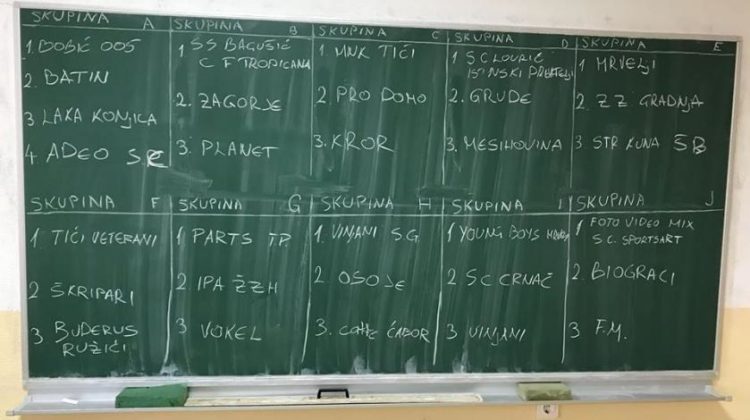 SKUPINA A
1. DOBIĆ 005
2. BATIN
3 LAKA KONJICA
4. ADEO ŠB
SKUPINA B
1 SS BAGUŠIĆ
C F TROPICANA
2. ZAGORJE
3. PLANET
SKUPINA C
1. MNK TIĆI
2. PRO DOMO
3. KROR
SKUPINA D
1 SC LOURIĆ
ISTINSKI PRIJATELJI
2. GRUDE
3. MESIHOVINA
SKUPINA E
1 MRVELJI
2. ZZ GRADNJA
3 STR KUNA ŠB
SKUPINA F
1 TIĆI VETERANI
2 ŠKRIPARI
3 BUDERUS
RUŽIĆI
SKUPINA G
1 PARTS TP
2. IPA ŽZH
3 VOKEL
SKUPINA H
1. VINJANI S.G.
2. OSOJE
3. CAFFE ČABOR
SKUPINA I
1 YOUNG BOYS
2. SC CRNAČ
3 VINJANI
SKUPINA J
1 FOTO VIDEO MIX
S.C. SPORTSART
2. BIOGRACI
3 F.M.